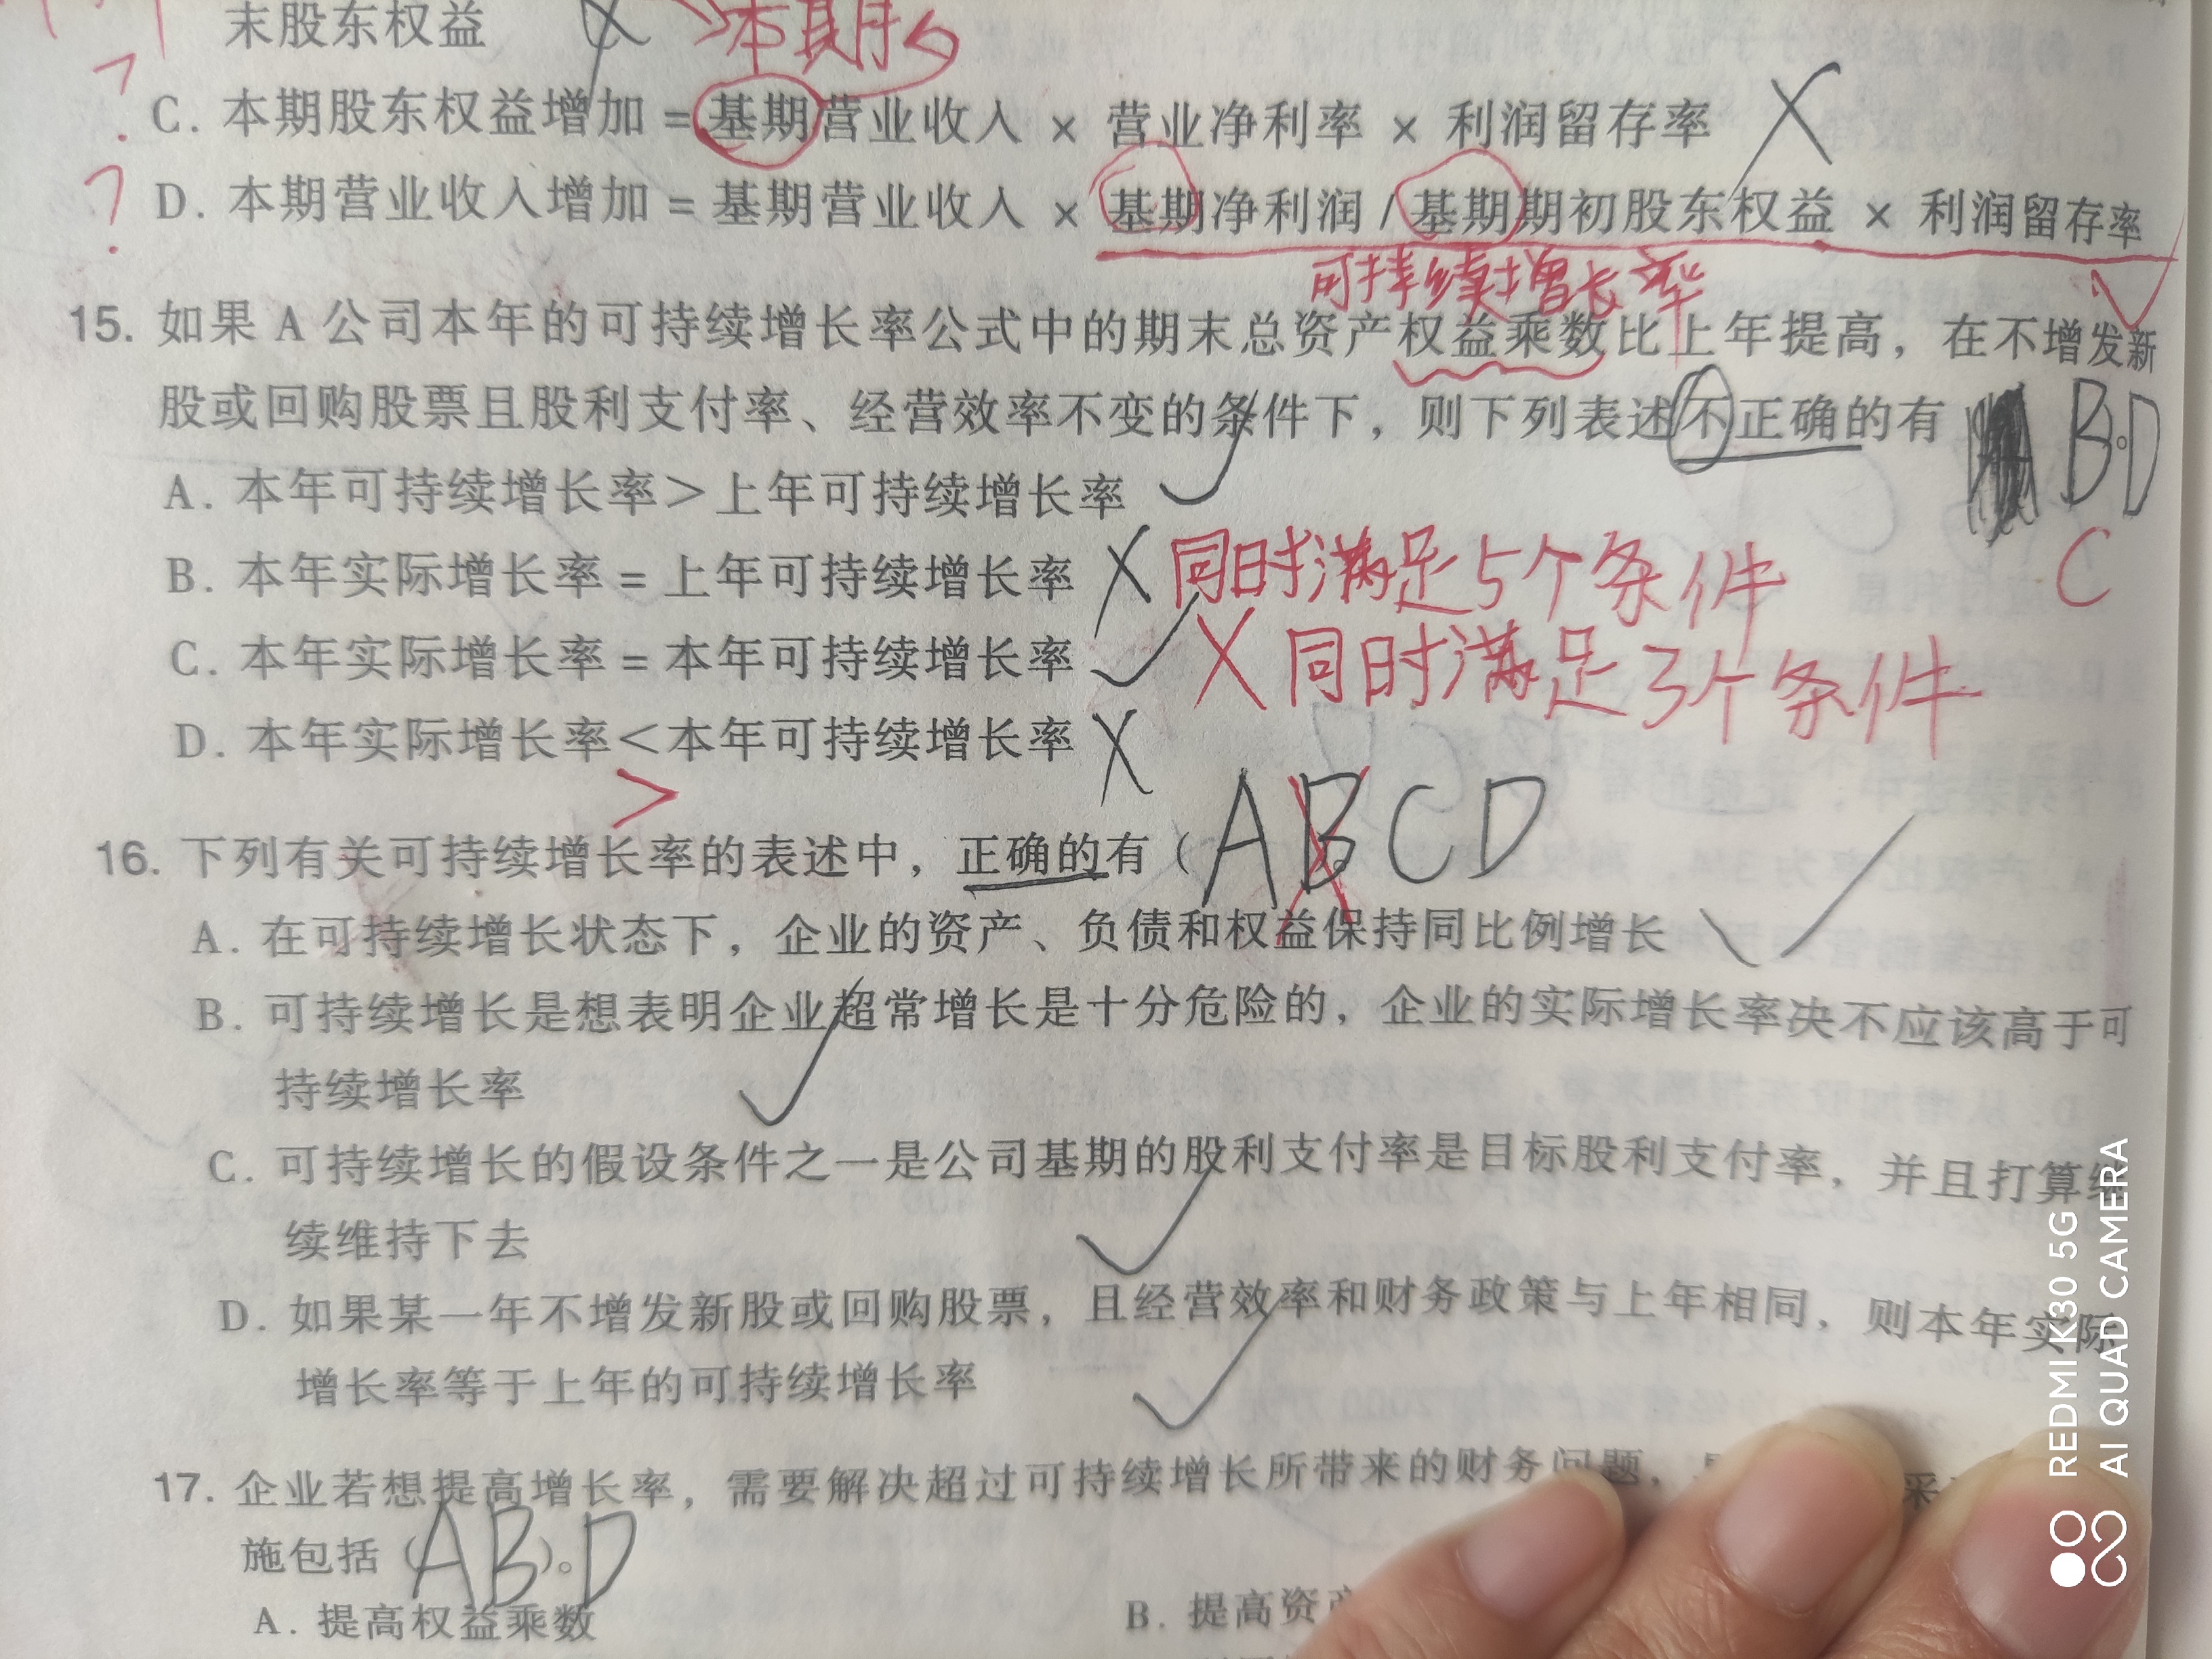 末股东权益 X 本期
? C. 本期股东权益增加 = 基期营业收入 × 营业净利率 × 利润留存率 X
? D. 本期营业收入增加 = 基期营业收入 × 基期净利润 / 基期期初股东权益 × 利润留存率
可持续增长率
15. 如果 A 公司本年的可持续增长率公式中的期末总资产权益乘数比上年提高，在不增发新
股或回购股票且股利支付率、经营效率不变的条件下，则下列表述不正确的有 B。D
C
A. 本年可持续增长率＞上年可持续增长率 ✓
B. 本年实际增长率 = 上年可持续增长率 X 同时满足5个条件
C. 本年实际增长率 = 本年可持续增长率 ✓ X 同时满足3个条件
D. 本年实际增长率＜本年可持续增长率 X
>
16. 下列有关可持续增长率的表述中，正确的有（ABCD
A. 在可持续增长状态下，企业的资产、负债和权益保持同比例增长 ✓
B. 可持续增长是想表明企业超常增长是十分危险的，企业的实际增长率决不应该高于可
持续增长率 ✓
C. 可持续增长的假设条件之一是公司基期的股利支付率是目标股利支付率，并且打算继
续维持下去 ✓
D. 如果某一年不增发新股或回购股票，且经营效率和财务政策与上年相同，则本年实际
增长率等于上年的可持续增长率 ✓
17. 企业若想提高增长率，需要解决超过可持续增长所带来的财务问题，采
施包括（ABD）。
A. 提高权益乘数 B. 提高资产
REDMI K30 5G
AI QUAD CAMERA